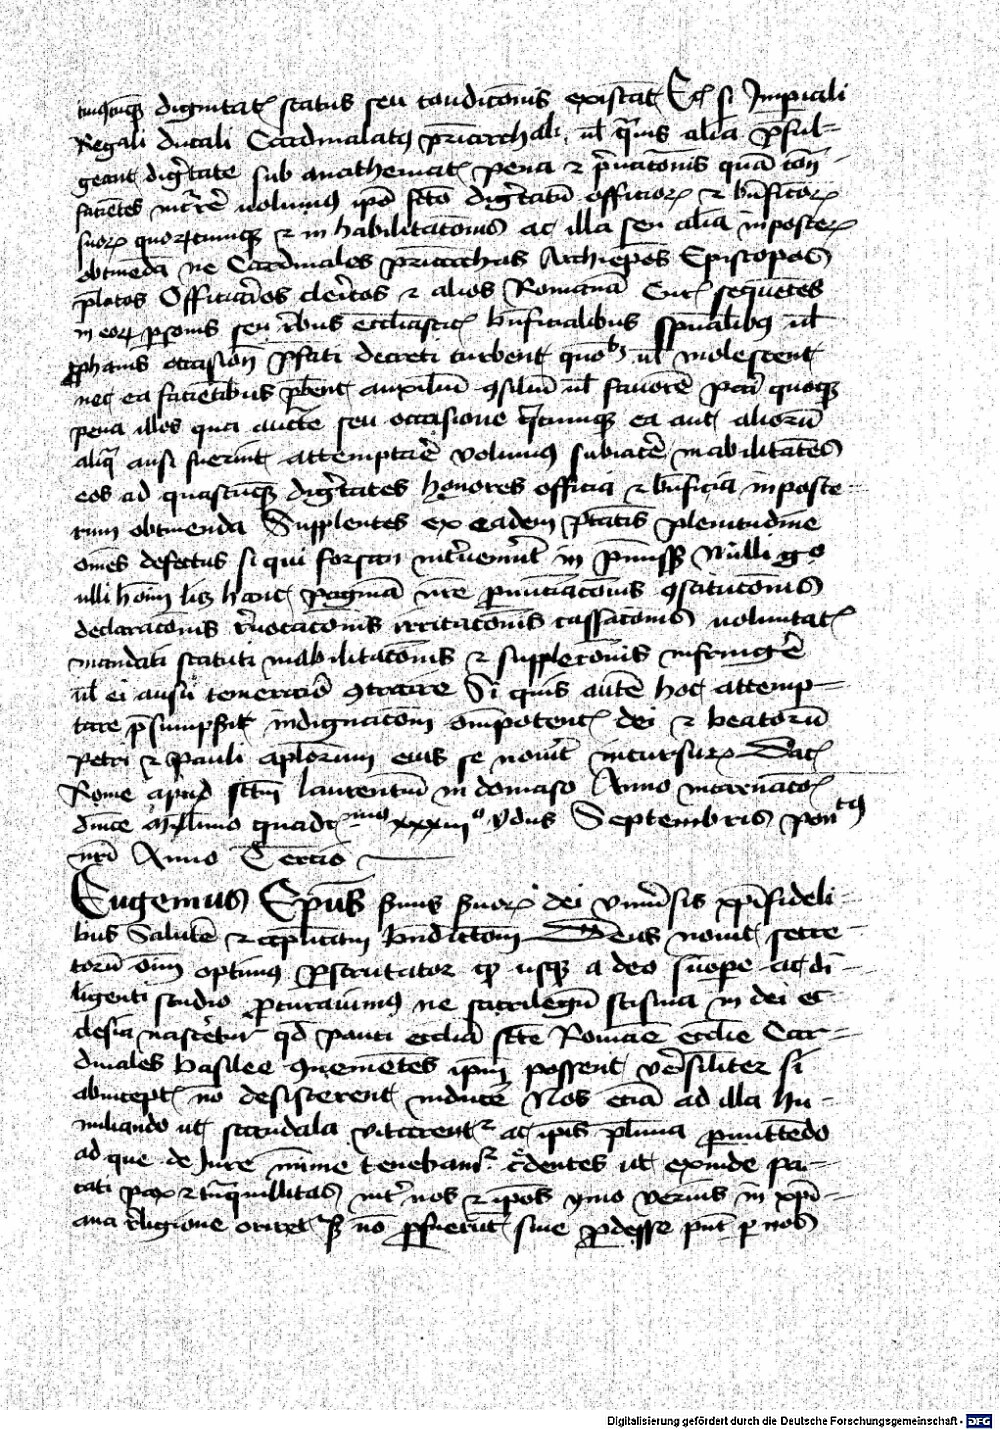 cuiuscumque dignitatis status seu condicionis existat Etiam si Imperiali
Regali ducali Cardinalatus patriarchali vel quavis alia preful-
geant dignitate sub anathematis pena et privationis quam con-
facientes incurrere volumus ipso facto dignitatum officiorum et beneficiorum
suorum quorumcumque et inhabilitationis ac illa seu alia inposterum
obtinenda ne Cardinales patriarchas Archiepos Episcopos
prelatos Officiarios clericos et alios Romanam Curiam sequentes
in eorum personis seu rebus ecclesiasticis beneficialibus spiritualibus vel
prophanis occasione prefati decreti turbent quovis vel molestent
nec ea facientibus prebent auxilium consilium vel favorem pari quoque
pena illos qui auctoritate seu occasione quacumque ea aut aliorum
aliqua ausi fuerint attemptare volumus subiacere inabilitantes
eos ad quascumque dignitates honores officia et beneficia inposte-
rum obtinenda Supplentes ex eadem potestatis plenitudine
omnes defectus si qui forsan intervenerint in premissis Nulli ergo
ulli hominum liceat hanc paginam nostre pronunciationis constitutionis
declarationis revocationis irritationis cassationis voluntatis
mandati statuti inabilitationis et suppletionis infringere
vel ei ausu temerario contraire Si quis autem hoc attemp-
tare presumpserit indignationem omnipotentis dei et beatorum
Petri et Pauli aplorum eius se noverit incursurum Datum
Rome apud sanctum laurentium in domaso Anno incarnationis
dnice Millesimo quadringentesimo xxxiii° ydus Septembris pontificatus
nostri Anno Tercio
Eugenius Epus servus servorum dei universis xpifideli-
bus Salutem et aplicam benedictionem Deus novit secre-
torum omnium optimus perscrutator quod usque adeo summopere ac di-
ligenti studio procuravimus ne sacrilegum scisma in dei ec-
clesia nasceretur quod pauci ecclesiam sancte Romane ecclesie Car-
dinales basilee convenientes ipsam possent verisimiliter si
ab inceptis non desisterent inducere Nos eciam ad illa hu-
miliando ut scandala vitarentur ac ipsis plurima permittendo
ad que de Jure minime tenebamur credentes ut exinde pa-
cati pax et tranquillitas inter nos et ipsos ymo verius in xpi-
ana religione oriretur sed non profuerunt sive prodesse possunt per nos